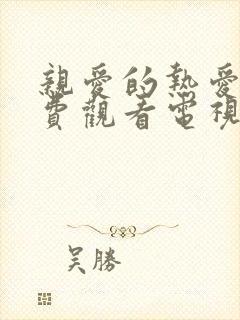 親愛的熱愛
費觀看電視
吴勝